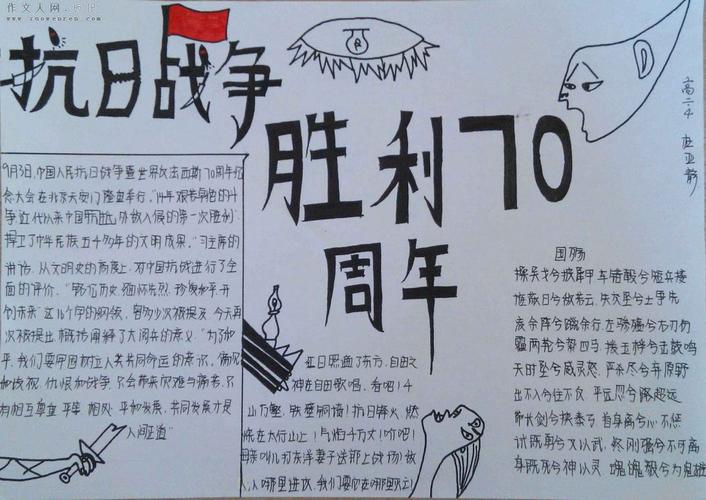 作文人网
www.zuowenren.com
抗日战争
胜利70
周年
高二4
9月3日,中国人民抗日战争暨世界反法西斯70周年纪
念大会在北京天安门隆重举行,"14年艰苦卓绝的斗
争近代以来中国抵抗外敌入侵的第一次胜利",
捍卫了中华民族五千多年的文明成果,"习主席的
讲话,从文明史的高度上,对中国抗战进行了全
面的评价,"铭记历史、缅怀先烈、珍爱和平、开
创未来"这16个字的网领,曾多少次被提及,今天再
次被提出,概括阐释了大阅兵的意义。"为了和
平,我们要牢固树立人类共同命运的意识,偏见
和歧视、仇恨和战争,只会带来灾难与痛苦,只
有相互尊重、平等相处、和平发展、共同发展才是
人间正道"
红日照遍了东方,自由之
神在自由歌唱,看吧!千
山万壑,铁壁铜墙!抗日烽火,燃
烧在太行山上!气焰千万丈!听吧!
母亲叫儿打东洋妻子送郎上战场!敌
人从哪里进攻,我们要你在哪里灭亡!
国殇
操吴戈兮披犀甲,车错毂兮短兵接
旌蔽日兮敌若云,矢交坠兮士争先
凌余阵兮躐余行,左骖殪兮右刃伤
霾两轮兮絷四马,援玉桴兮击鼓鸣
天时坠兮威灵怒,严杀尽兮弃原野
出不入兮往不反,平远忽兮路超远
带长剑兮挟秦弓,首身离兮心不惩
诚既勇兮又以武,终刚强兮不可凌
身既死兮神以灵,魂魄毅兮为鬼雄